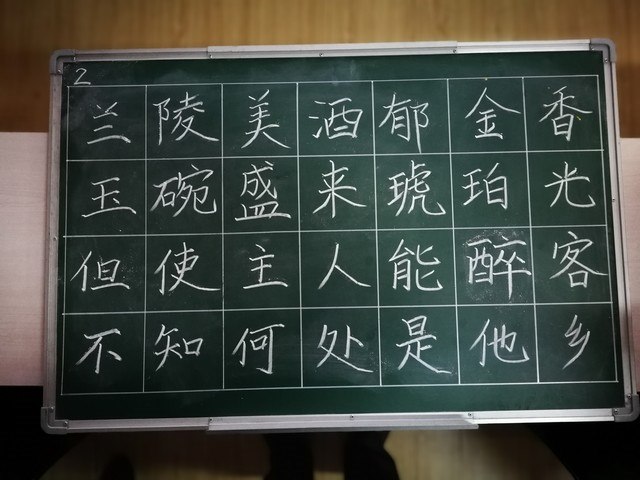 2
兰陵美酒郁金香
玉碗盛来琥珀光
但使主人能醉客
不知何处是他乡